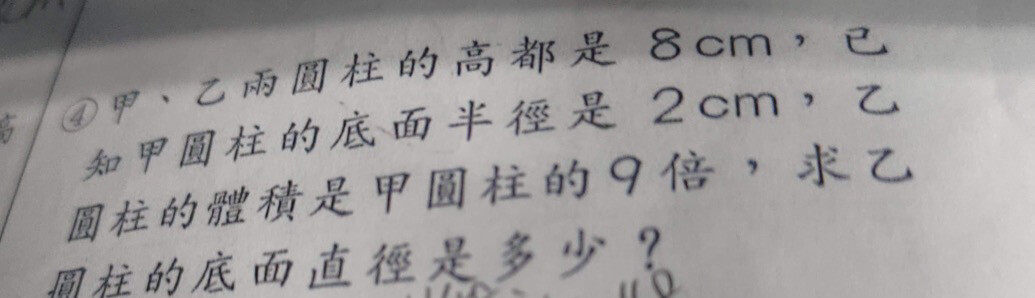 ④甲、乙兩圓柱的高都是 8cm，已
知甲圓柱的底面半徑是 2cm，乙
圓柱的體積是甲圓柱的9倍，求乙
圓柱的底面直徑是多少？